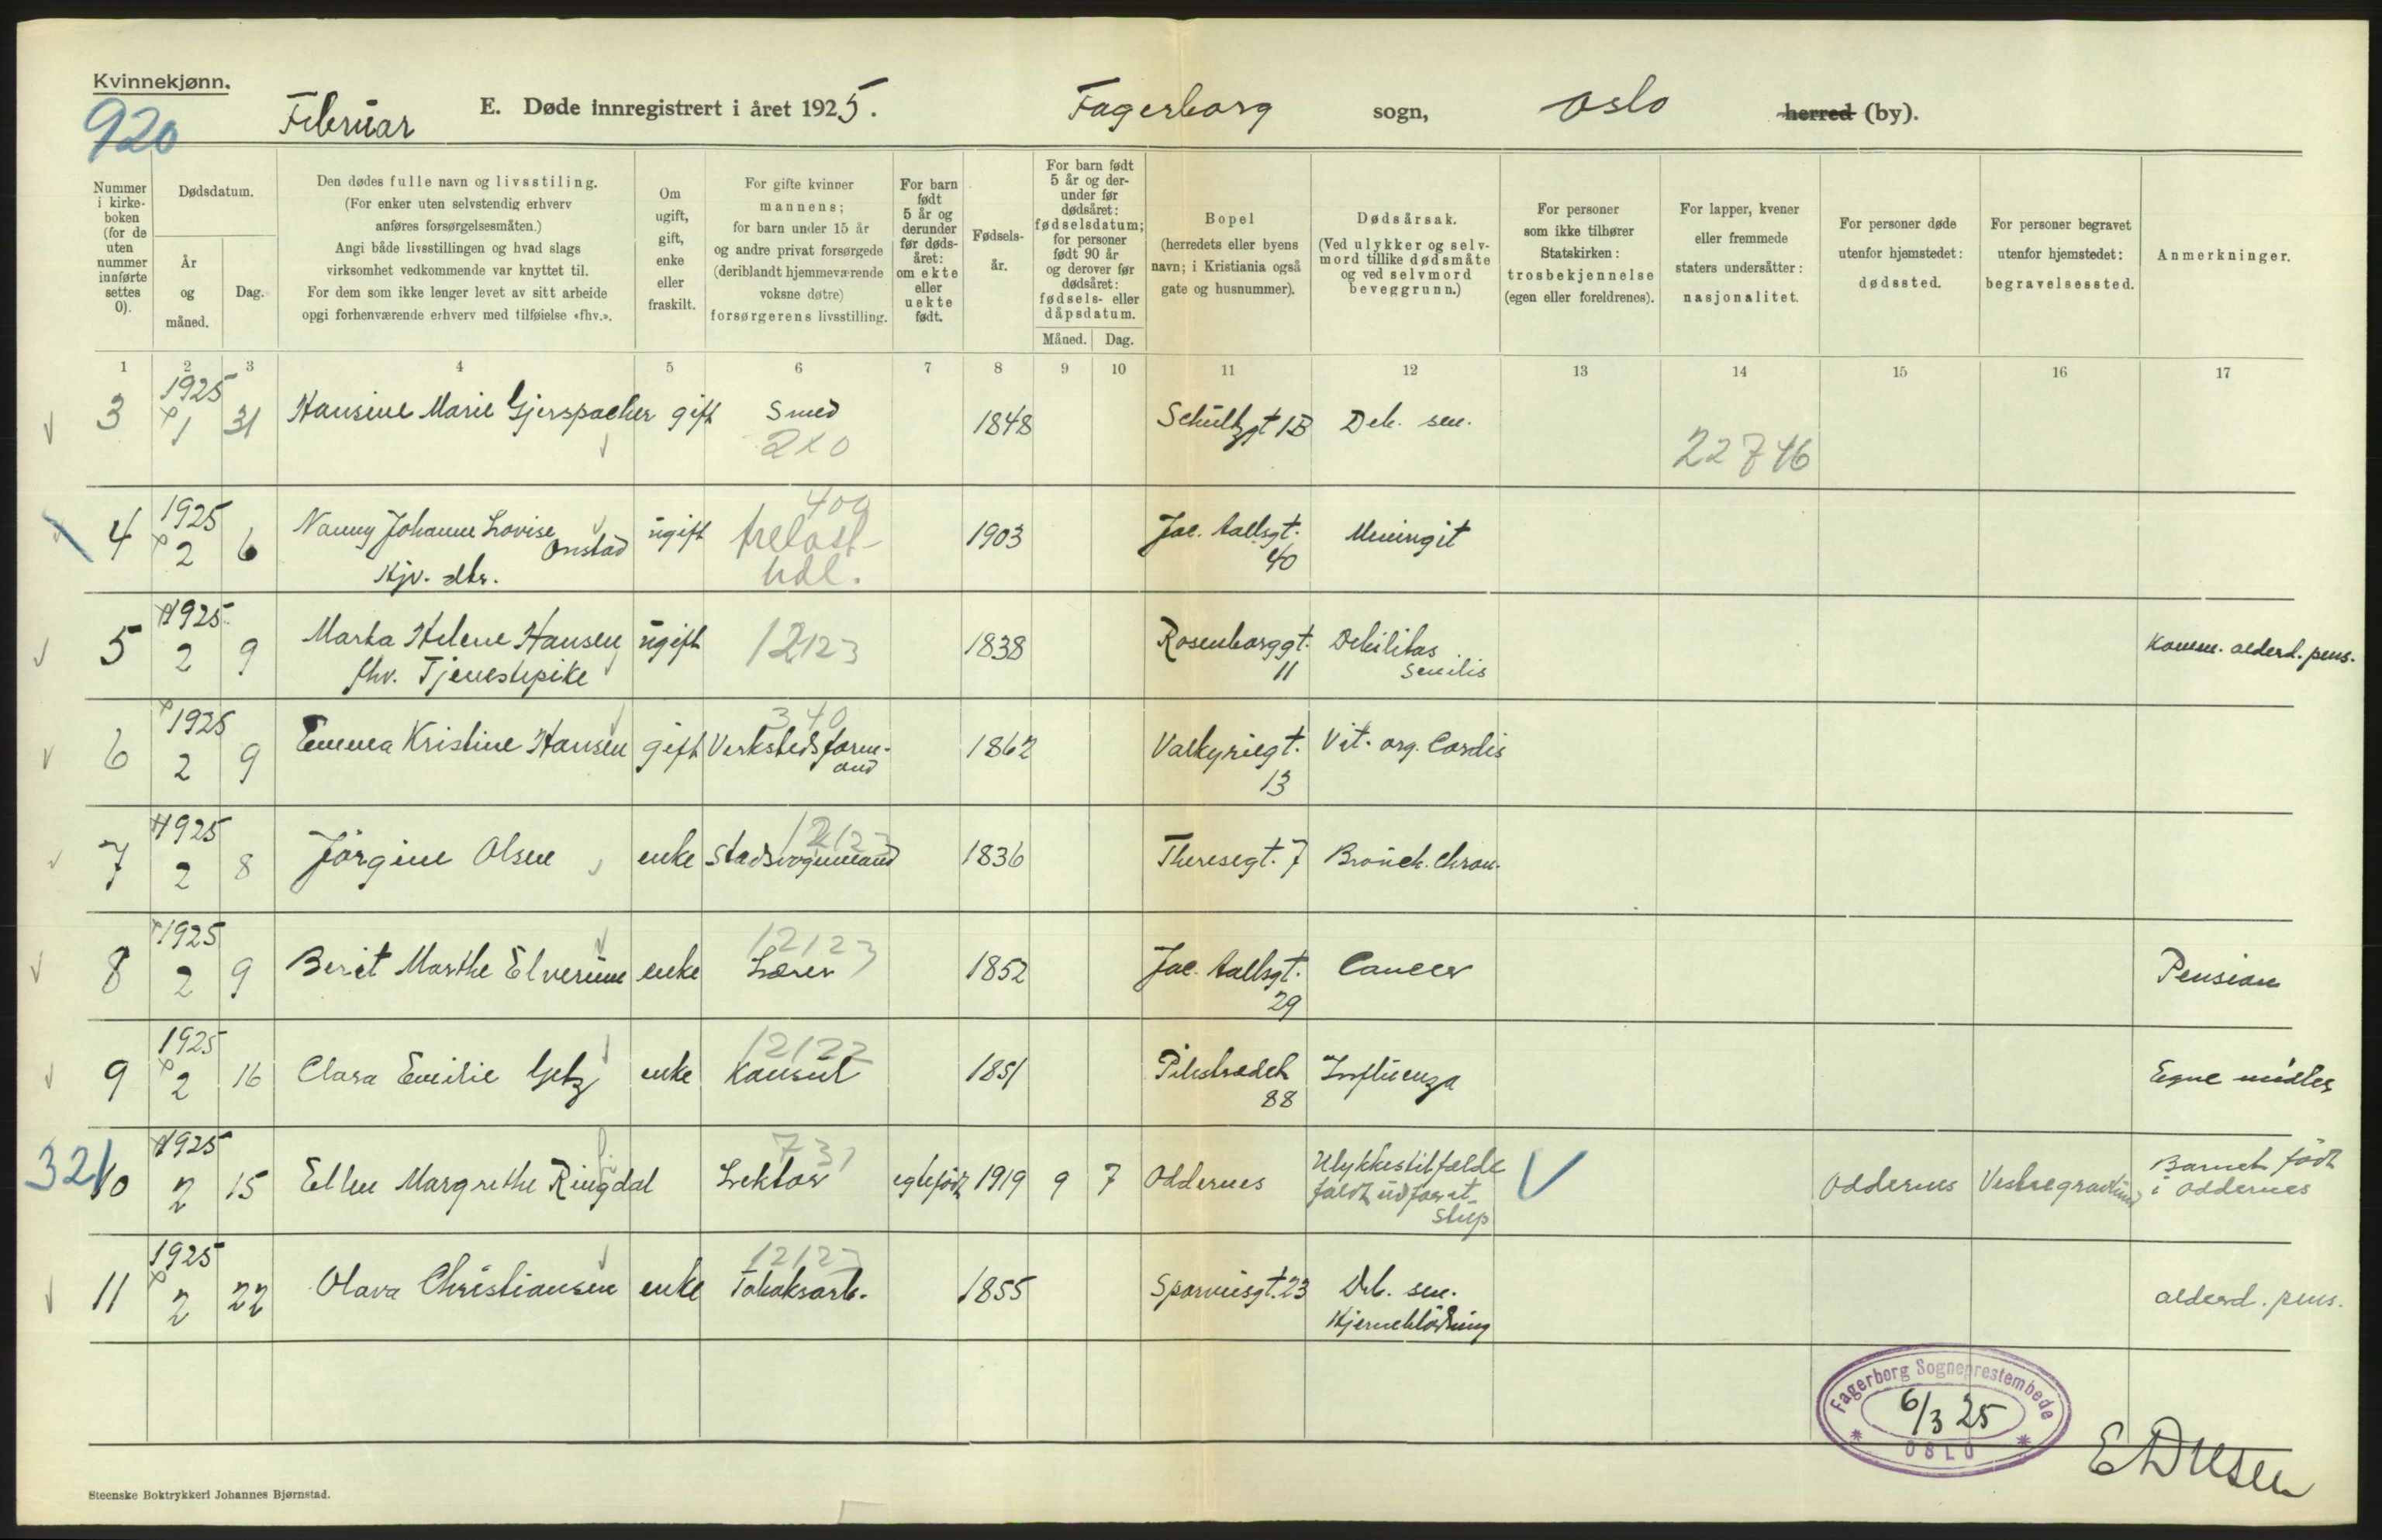 Kvinnekjønn.
920
Februar
E. Døde innregistrert i året 1925.
Fagerborg sogn, Oslo herred (by).
Nummer i kirke-boken (for de uten nummer innførte settes 0).
Dødsdatum.
År og måned.
Dag.
Den dødes fulle navn og livsstiling.
(For enker uten selvstendig erhverv
anføres forsørgelsesmåten.)
Angi både livsstillingen og hvad slags
virksomhet vedkommende var knyttet til.
For dem som ikke lenger levet av sitt arbeide
opgi forhenværende erhverv med tilføielse «fhv.».
Om ugift, gift, enke eller fraskilt.
For gifte kvinner
mannens;
for barn under 15 år
og andre privat forsørgede
(deriblandt hjemmeværende
voksne døtre)
forsørgerens livsstilling.
For barn født 5 år og derunder før døds-året: om ekte eller uekte født.
Fødsels-år.
For barn født 5 år og der-under før dødsåret: fødselsdatum; for personer født 90 år og derover før dødsåret: fødsels- eller dåpsdatum.
Måned. Dag.
Bopel
(herredets eller byens
navn; i Kristiania også
gate og husnummer).
Dødsårsak.
(Ved ulykker og selv-
mord tillike dødsmåte
og ved selvmord
beveggrunn.)
For personer
som ikke tilhører
Statskirken:
trosbekjennelse
(egen eller foreldrenes).
For lapper, kvener
eller fremmede
staters undersåtter:
nasjonalitet.
For personer døde
utenfor hjemstedet:
dødssted.
For personer begravet
utenfor hjemstedet:
begravelsessted.
Anmerkninger.
1 2 3 4 5 6 7 8 9 10 11 12 13 14 15 16 17
3 1925 1 31 Hansine Marie Gjerspacher gift Smed 1848 Schultzgt 1B Deb. sen.
210
22746
4 1925 2 6 Nanny Johanne Lovise Onstad ugift 400 trelast- 1903 Jac. Aallsgt. 40 Meningit
Hjv. dtr. hdl.
5 1925 2 9 Marta Helene Hansen ugift 12123 1838 Rosenborggt. 11 Debilitas senilis Komm. alderd. pens.
fhv. Tjenestepike
6 1925 2 9 Emma Kristine Hansen gift 340 Verkstedsformand 1862 Valkyriegt. 13 Vit. org. Cordis
7 1925 2 8 Jørgine Olsen enke 12123 Stadsvognmand 1836 Theresegt. 7 Bronch. chron.
8 1925 2 9 Berit Marthe Elverum enke 12123 Lærer 1852 Jac. Aallsgt. 29 Cancer Pension
9 1925 2 16 Clara Emilie Getz enke 12122 Konsul 1851 Pilestrædet 88 Influenza Egne midler
321
10 1925 2 15 Ellen Margrethe Ringdal 731 Lektor egtefødt 1919 9 7 Oddernes Ulykkestilfælde faldt ud for et stup Oddernes Vestre gravlund Barnet født i Oddernes
11 1925 2 22 Olava Christiansen enke 12123 Tobaksarb. 1855 Sporveisgt. 23 Deb. sen. Hjerneblødning alderd. pens.
Fagerborg Sogneprestembede
6/3 25
OSLO
Steenske Boktrykkeri Johannes Bjørnstad.